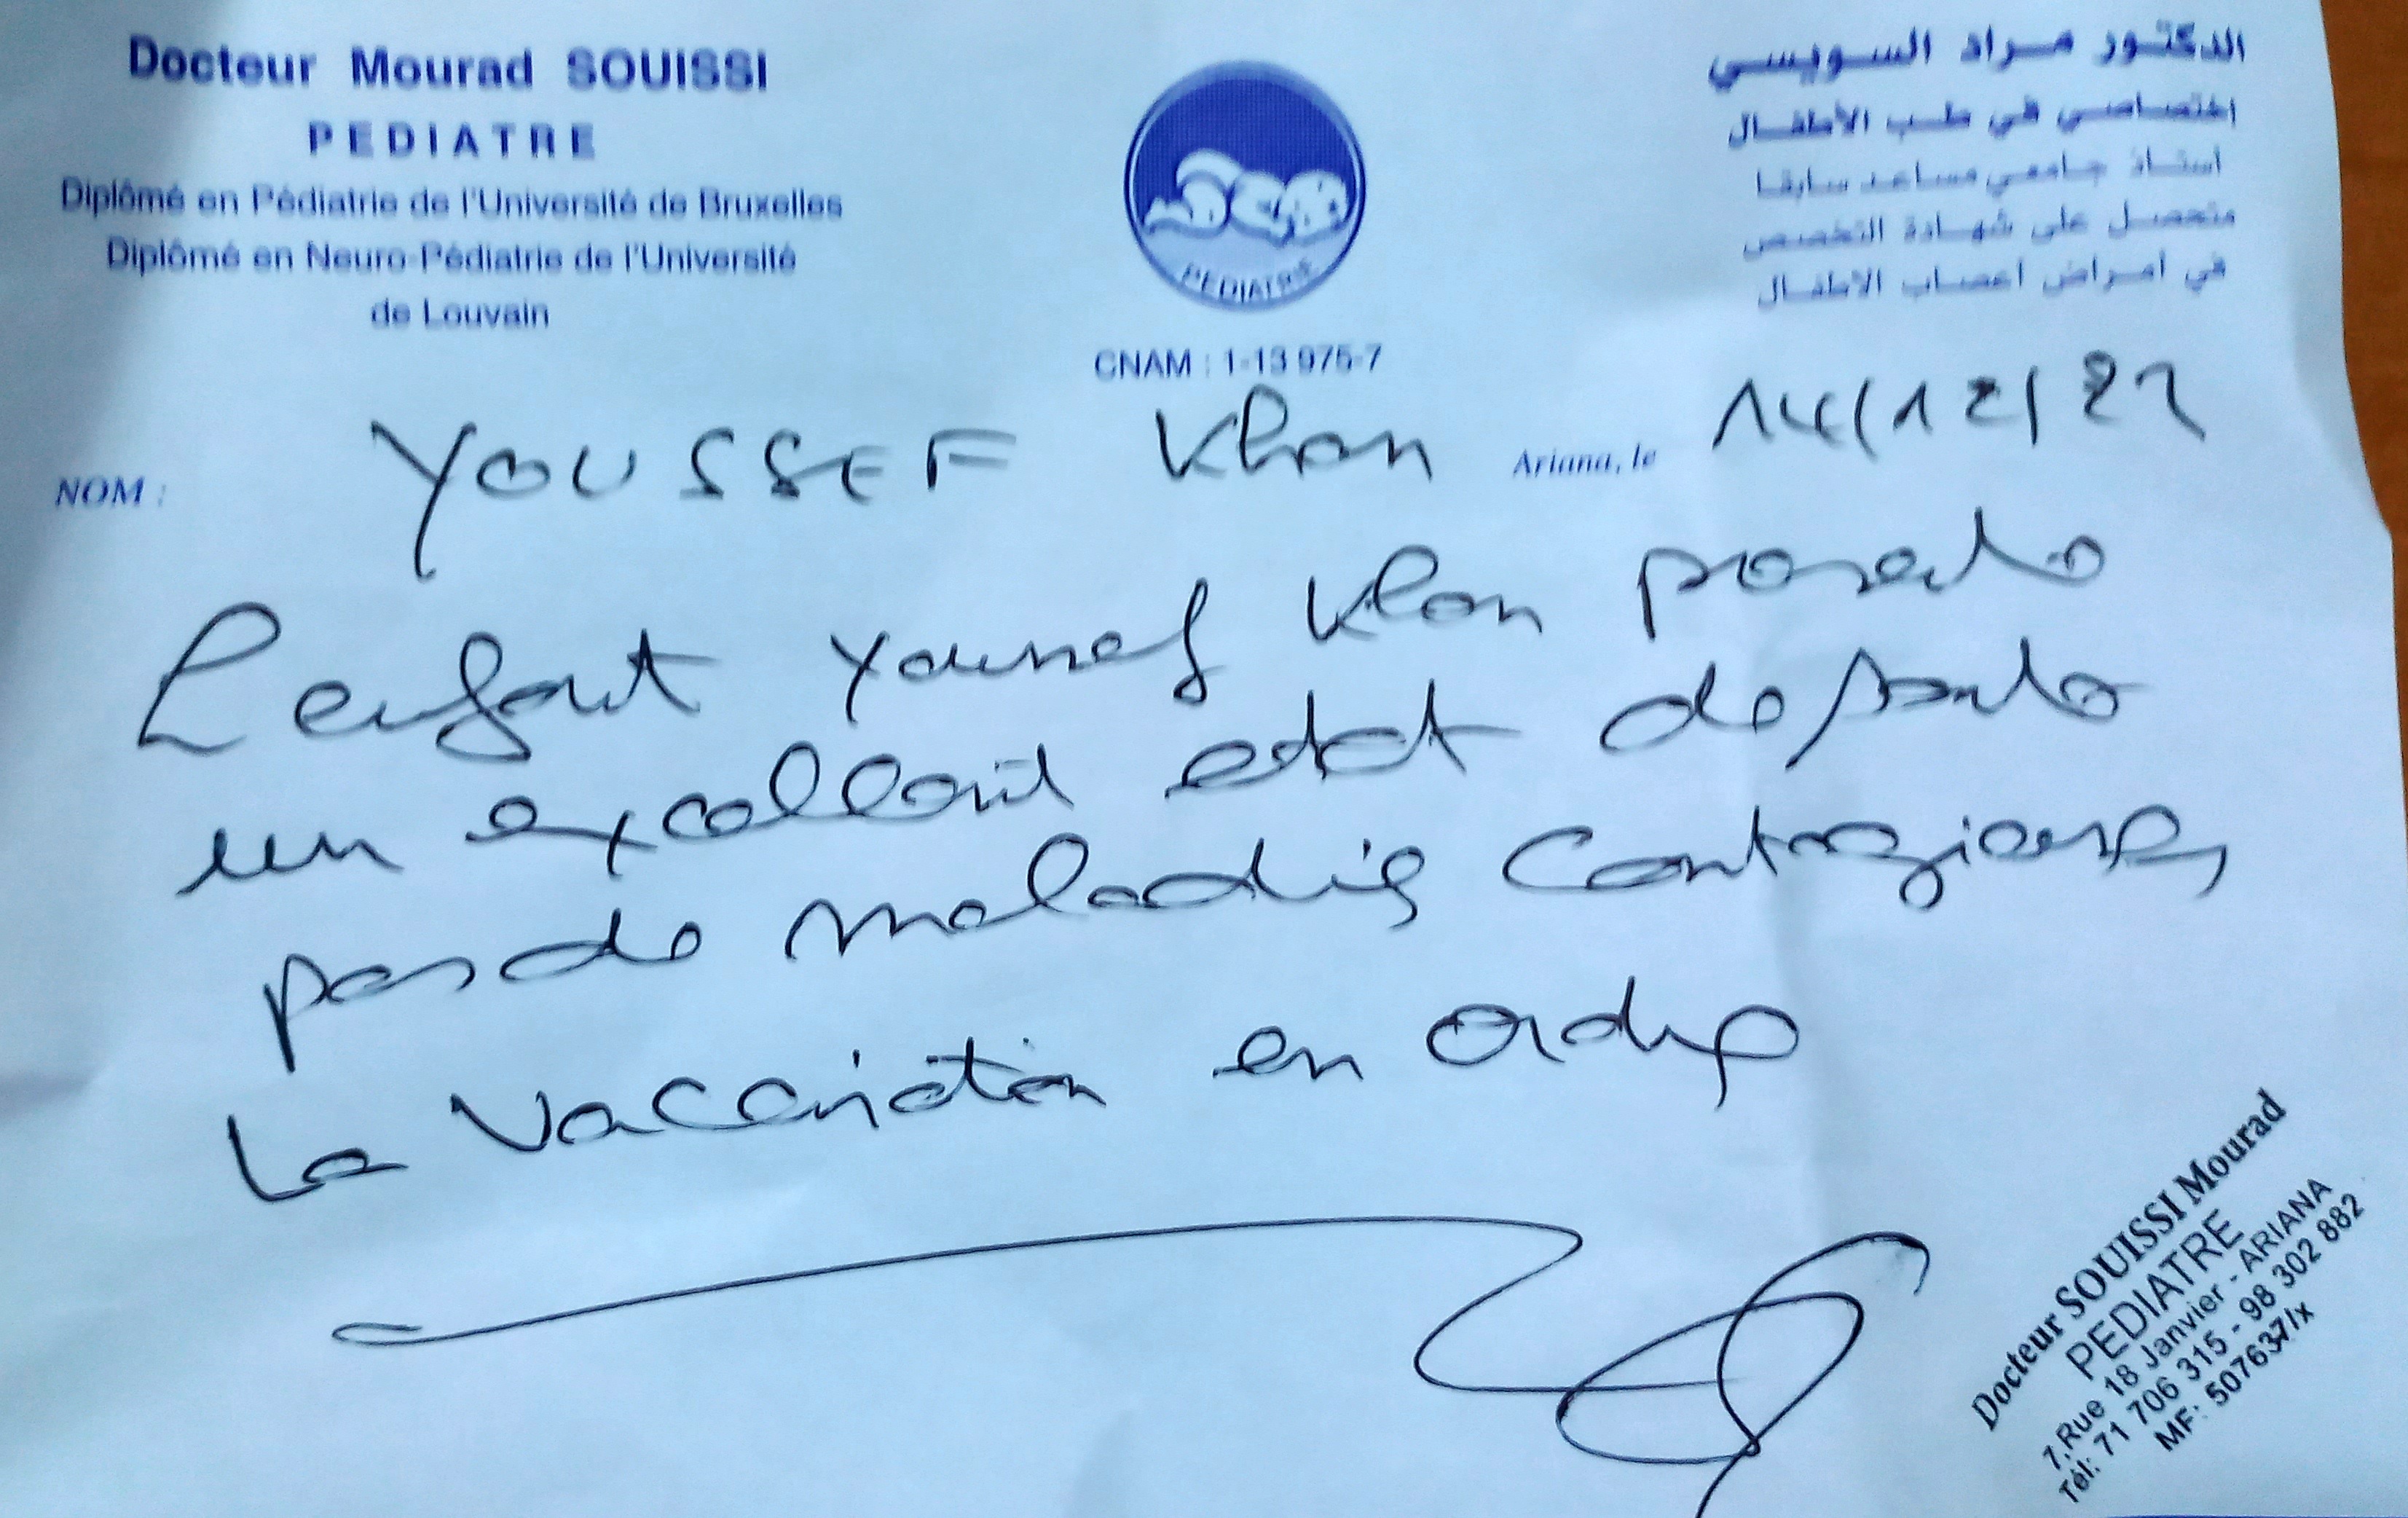 Docteur Mourad SOUISSI
PEDIATRE
Diplômé en Pédiatrie de l'Université de Bruxelles
Diplômé en Neuro-Pédiatrie de l'Université
de Louvain
PEDIATRIE
CNAM : 1-13 975-7
الدكتور مراد السويسي
إختصاصي في طب الأطفال
أستاذ جامعي مساعد سابقا
متحصل على شهادة التخصص
في أمراض أعصاب الأطفال
NOM : YOUSSEF Khan Ariana, le 14/12/22
L'enfant Youssef Khan possede
un excellent etat de sante
pas de maladies contagieuses
La vaccination en ordre
Docteur SOUISSI Mourad
PEDIATRE
7,Rue 18 Janvier - ARIANA
Tél: 71 706 315 - 98 302 882
MF: 507637/x